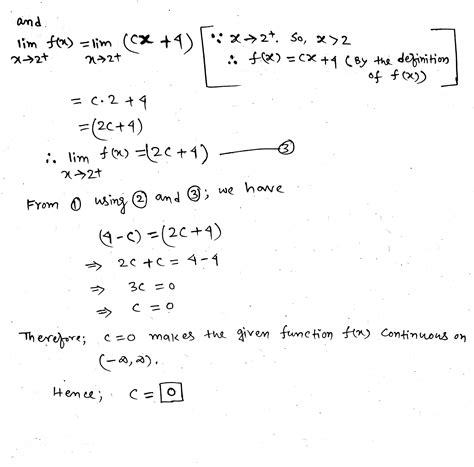 and
lim f(x) = lim (cx + 4) [∵ x→2⁺. So, x > 2
x→2⁺ x→2⁺ ∴ f(x) = cx + 4 (By the definition
of f(x))]
= c·2 + 4
= (2c+4)
∴ lim f(x) = (2c+4) ——— ③
x→2⁺
From ① using ② and ③; we have
(4-c) = (2c+4)
⇒ 2c + c = 4 - 4
⇒ 3c = 0
⇒ c = 0
Therefore; c=0 makes the given function f(x) continuous on
(-∞, ∞).
Hence; c = 0